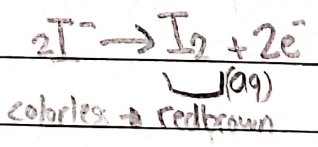 2I⁻ → I₂ + 2e⁻
(aq)
colorless → redbrown